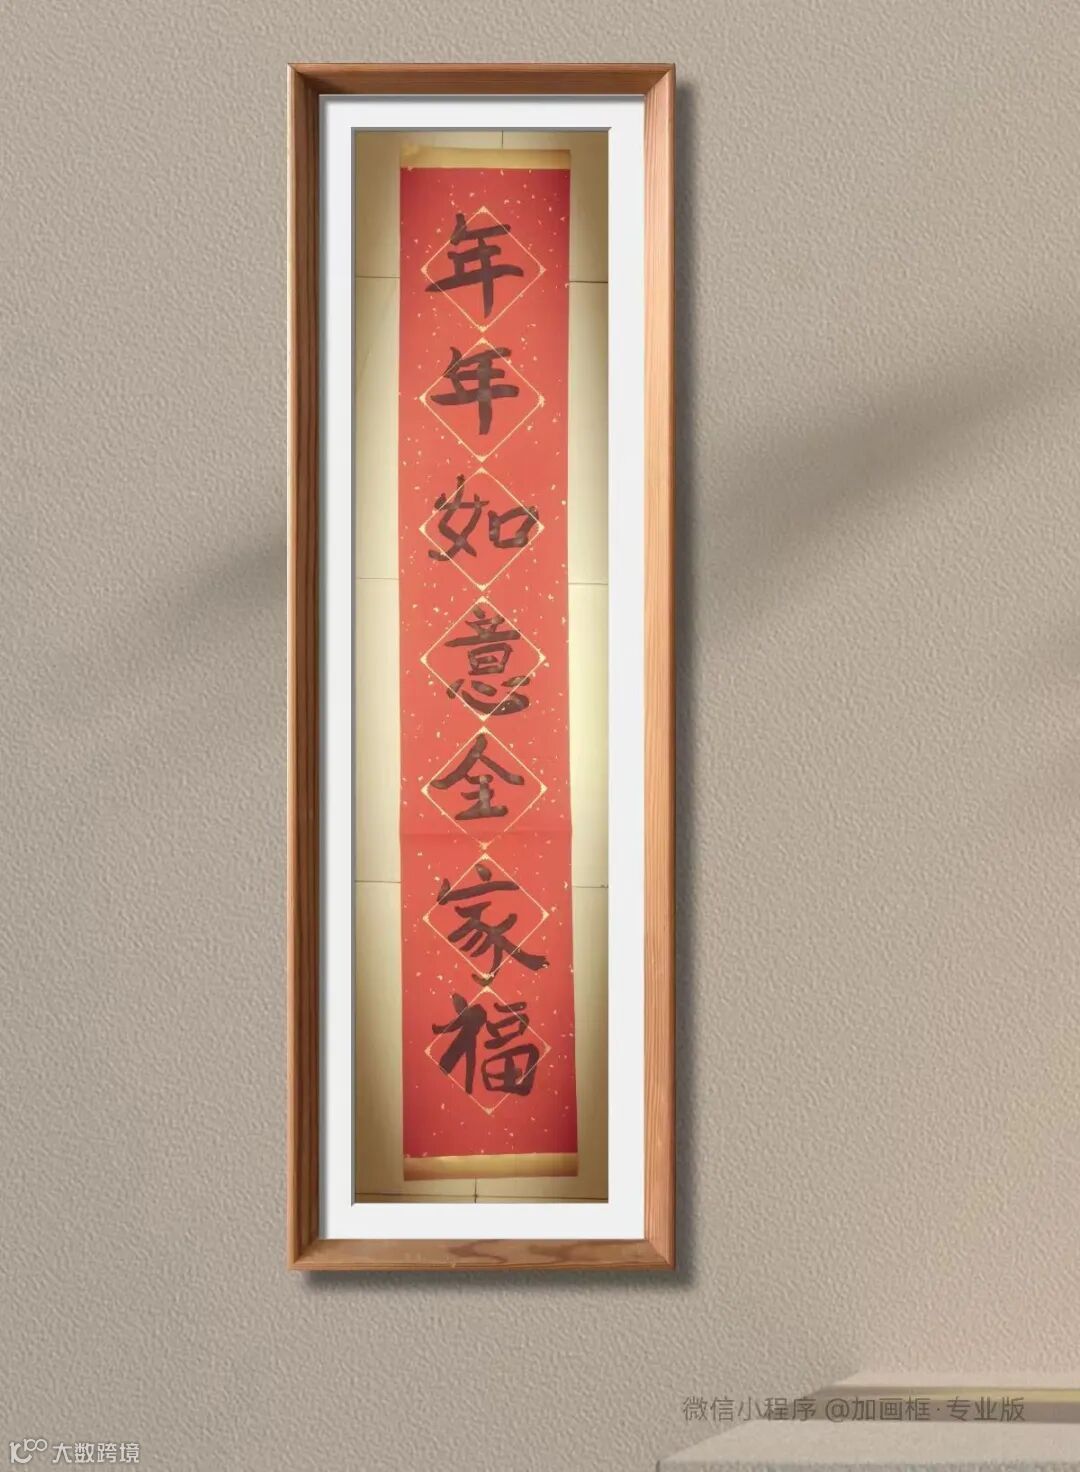 年年如意全家福
微信小程序 @加画框·专业版
大数跨境